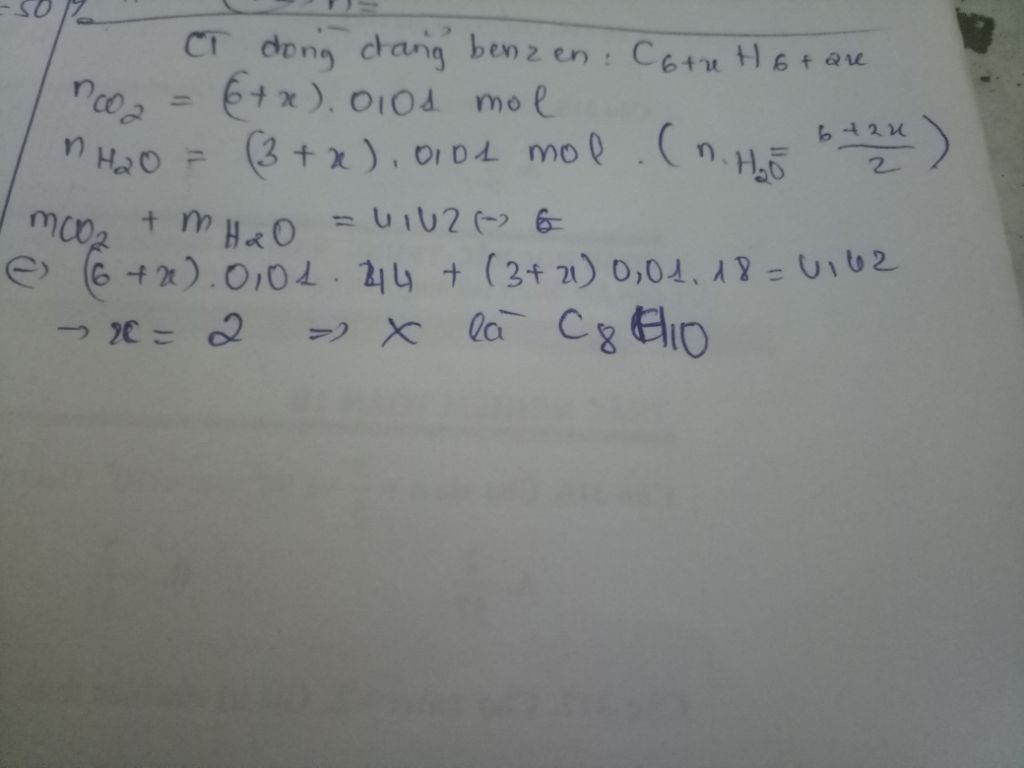 =50%
CT đồng đẳng benzen: C6+xH6+2x
nCO2 = (6+x).0,01 mol
nH2O = (3+x).0,01 mol. (n.H2O = 6+2x/2)
mCO2 + mH2O = 4,42 (->
(=) (6+x).0,01.44 + (3+x)0,01.18 = 4,42
-> x = 2 => X là C8H10